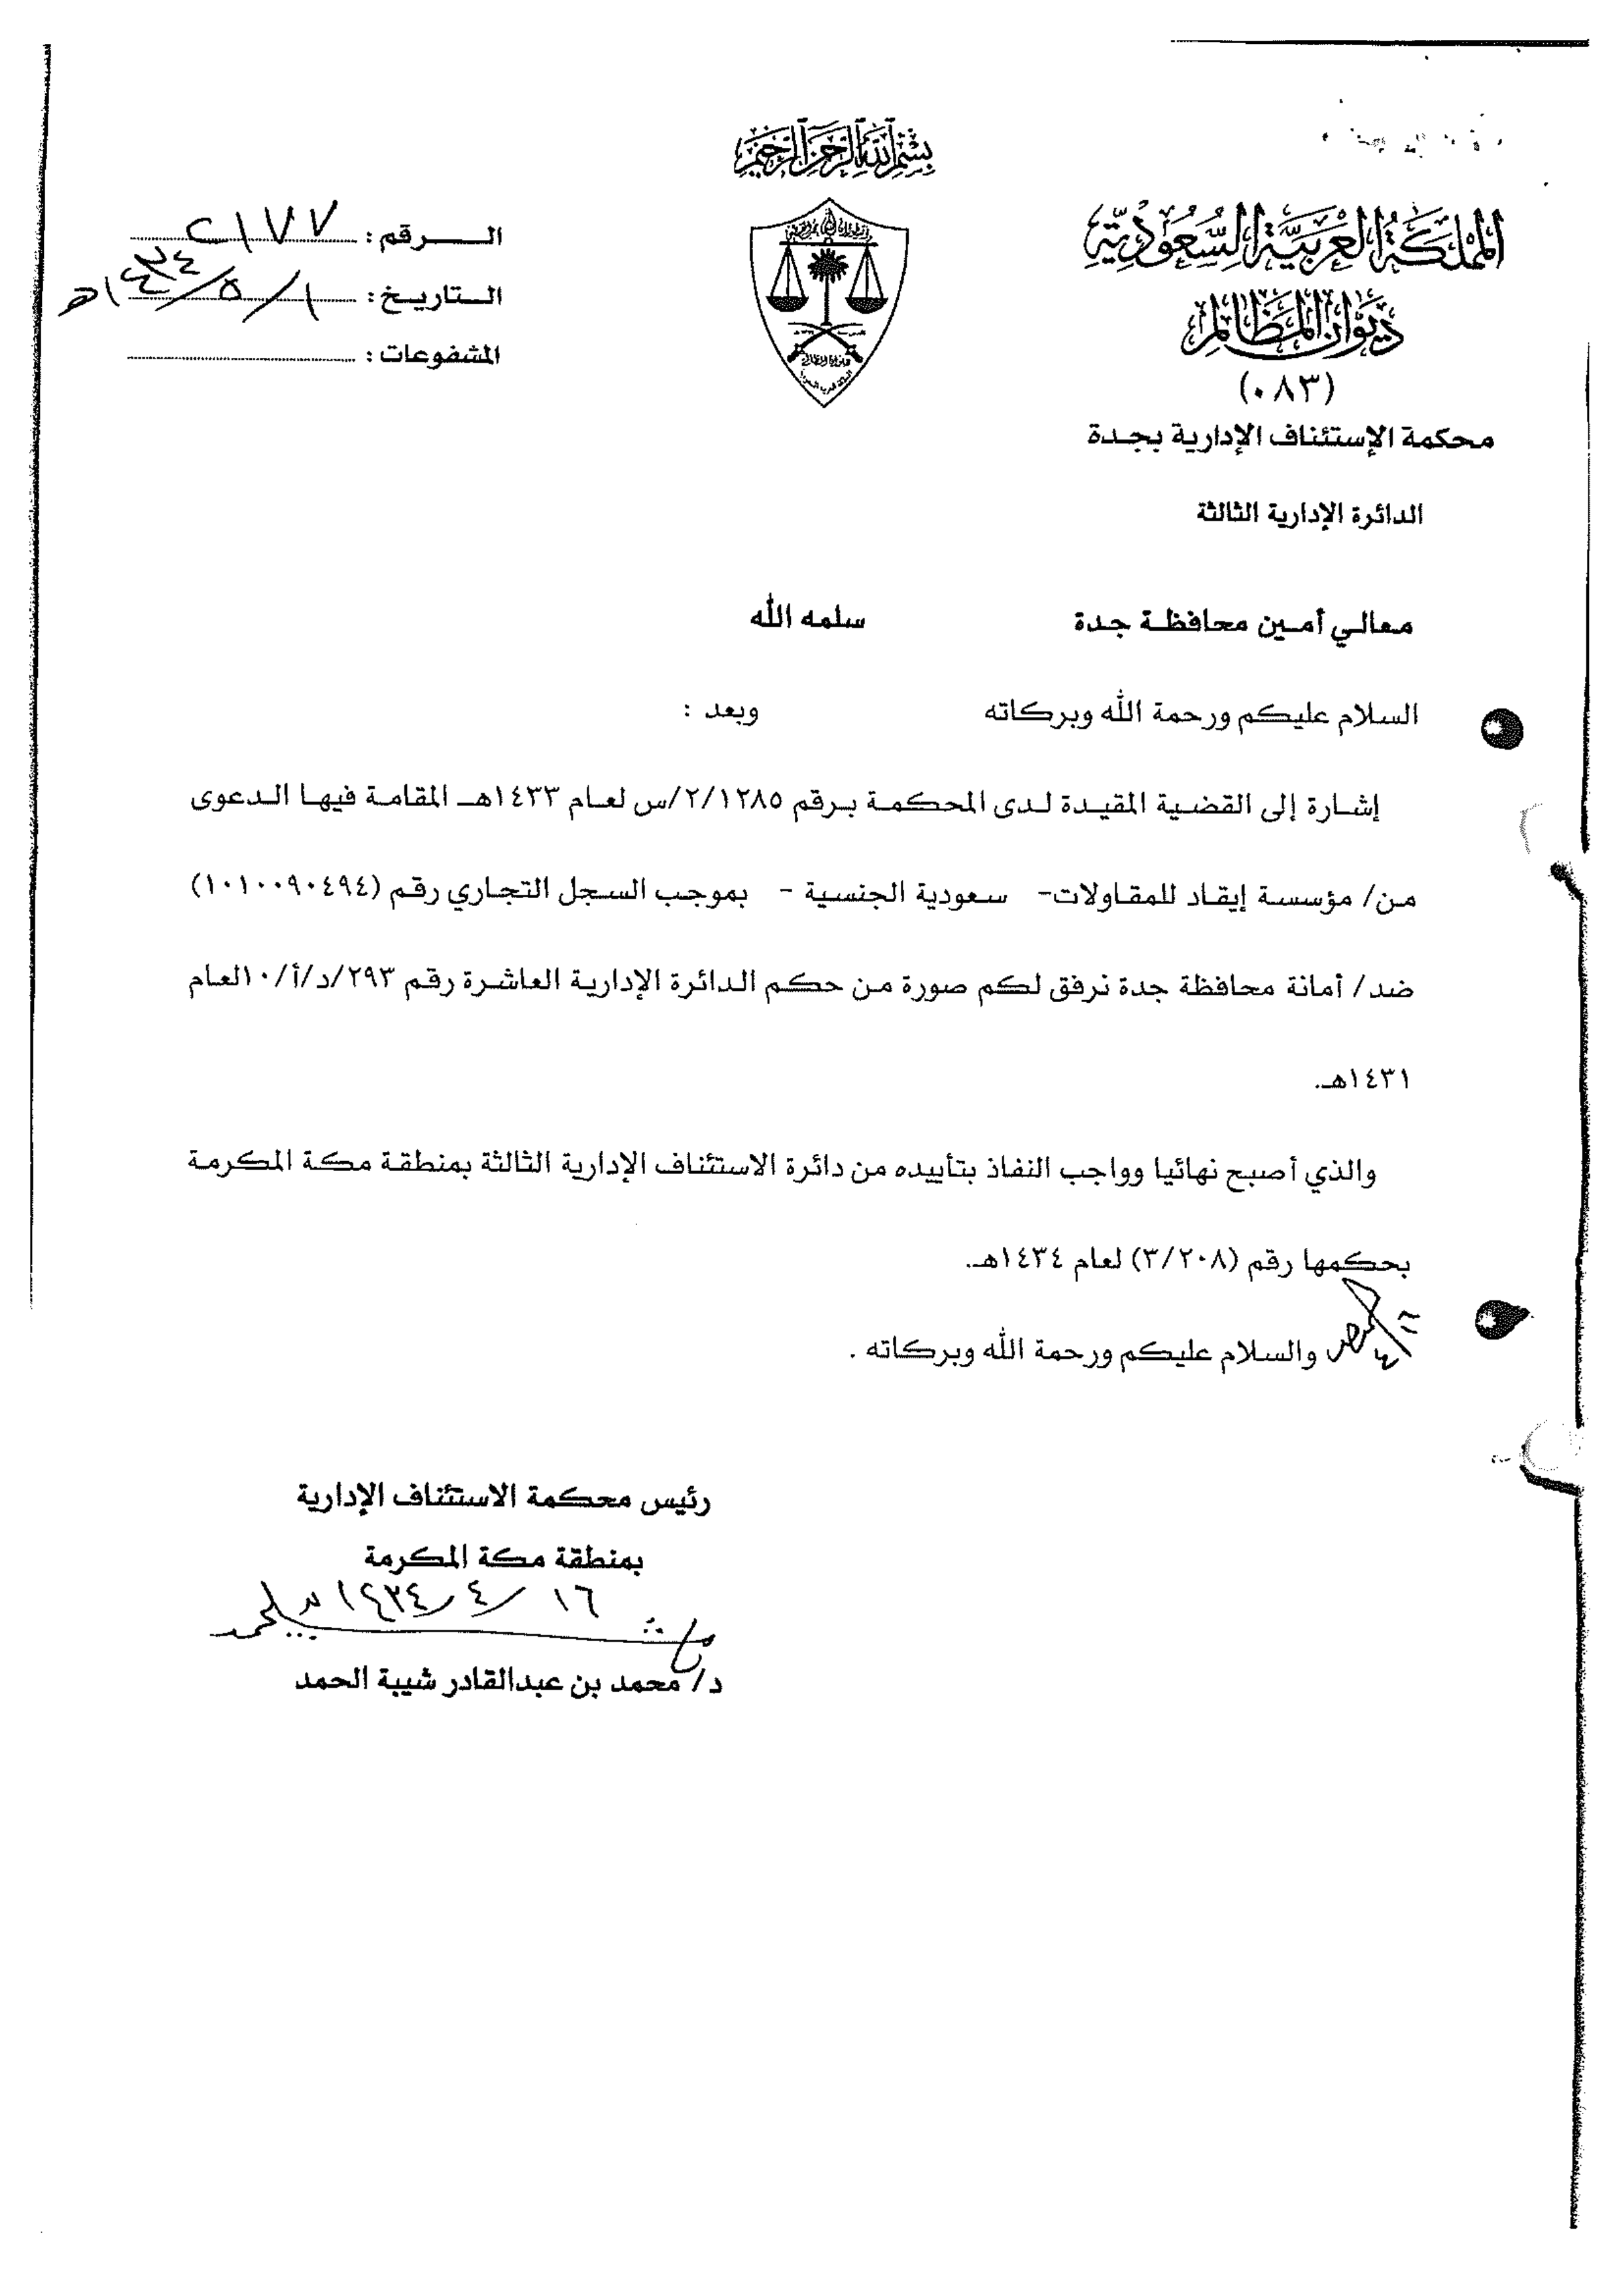 بسم الله الرحمن الرحيم
المملكة العربية السعودية
ديوان المظالم
(٠٨٣)
محكمة الإستئناف الإدارية بجدة
الدائرة الإدارية الثالثة
الرقم : ٢١٧٧
التاريخ : ١/٥/١٤٣٤هـ
المشفوعات :
معالي أمين محافظة جدة سلمه الله
السلام عليكم ورحمة الله وبركاته وبعد :
إشارة إلى القضية المقيدة لدى المحكمة برقم ٢/١٢٨٥/س لعام ١٤٣٣هـ المقامة فيها الدعوى
من/ مؤسسة إيقاد للمقاولات- سعودية الجنسية - بموجب السجل التجاري رقم (١٠١٠٠٩٠٤٩٤)
ضد/ أمانة محافظة جدة نرفق لكم صورة من حكم الدائرة الإدارية العاشرة رقم ٢٩٣/د/أ/١٠لعام
١٤٣١هـ.
والذي أصبح نهائيا وواجب النفاذ بتأييده من دائرة الاستئناف الإدارية الثالثة بمنطقة مكة المكرمة
بحكمها رقم (٣/٢٠٨) لعام ١٤٣٤هـ.
والسلام عليكم ورحمة الله وبركاته .
رئيس محكمة الاستئناف الإدارية
بمنطقة مكة المكرمة
١٦/٤/١٤٣٤هـ
د/ محمد بن عبدالقادر شيبة الحمد